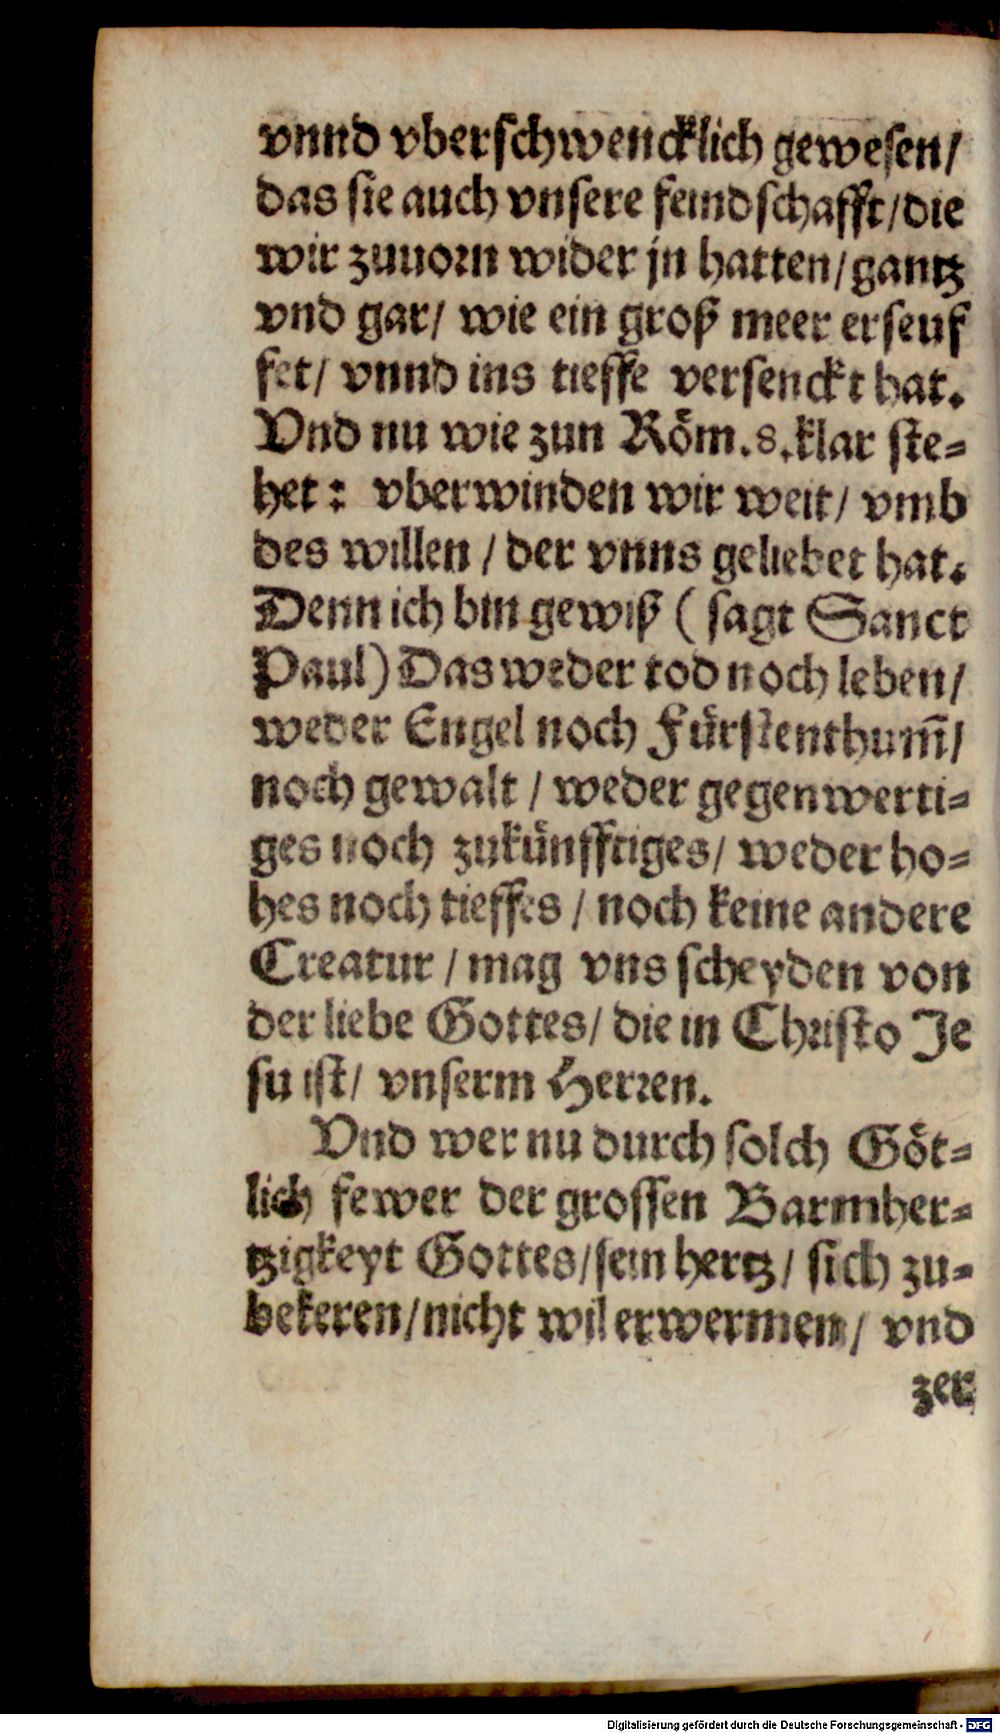 vnnd vberschwencklich gewesen/
das sie auch vnsere feindschafft/die
wir zuuorn wider jn hatten/gantz
vnd gar/ wie ein groß meer erseuf
fet/ vnnd ins tieffe versenckt hat.
Vnd nu wie zun Röm.8.klar ste-
het: vberwinden wir weit/ vmb
des willen / der vnns geliebet hat.
Denn ich bin gewiß ( sagt Sanct
Paul) Das weder tod noch leben/
weder Engel noch Fürstenthum̃/
noch gewalt / weder gegenwerti-
ges noch zukünfftiges/ weder ho-
hes noch tieffes / noch keine andere
Creatur / mag vns scheyden von
der liebe Gottes/ die in Christo Je
su ist/ vnserm Herren.
Vnd wer nu durch solch Göt-
lich fewer der grossen Barmher-
tzigkeyt Gottes/sein hertz/ sich zu-
bekeren/nicht wil erwermen/ vnd
zer
Digitalisierung gefördert durch die Deutsche Forschungsgemeinschaft - DFG